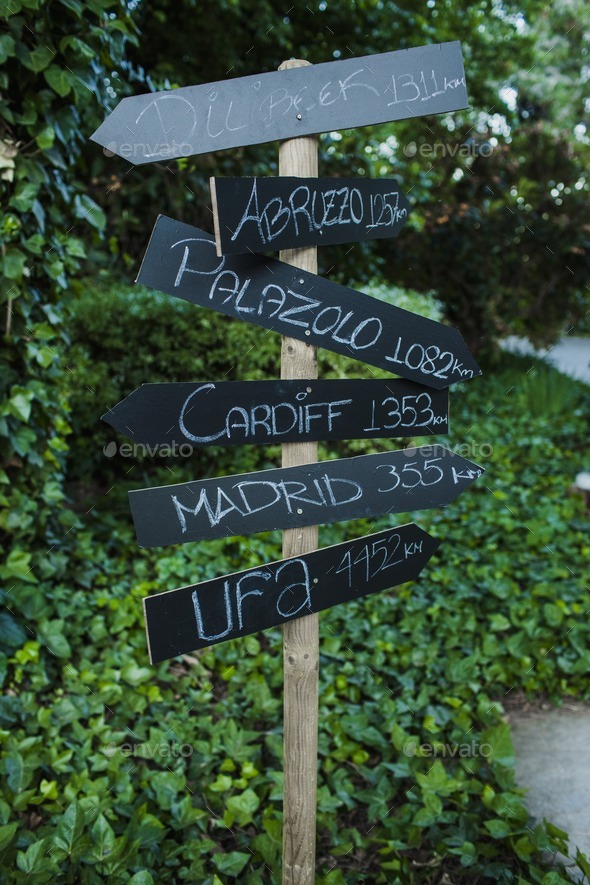 DILIBEEK 1311 KM
ABRUZZO 1257 KM
PALAZOLO 1082 KM
CARDIFF 1353 KM
MADRID 355 KM
UFA 4452 KM
envato
envato
envato
envato
envato
envato